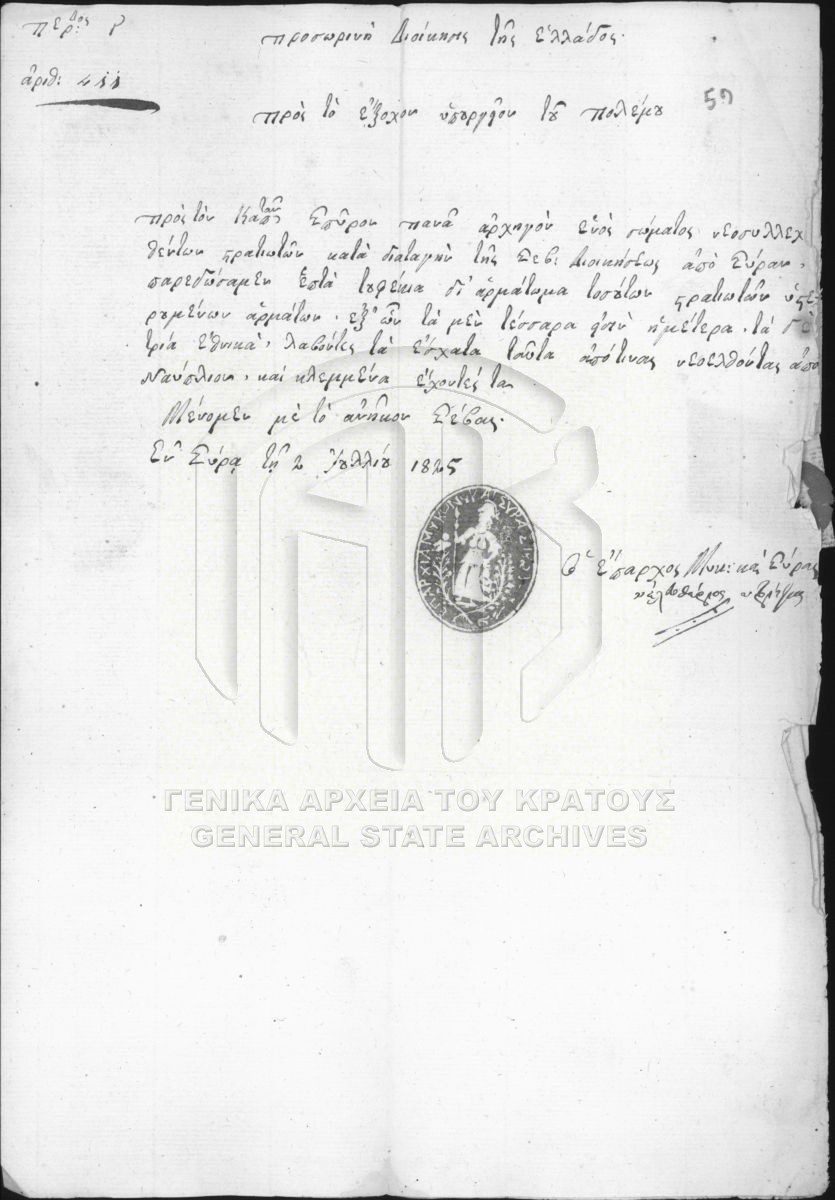 Περ:δος Γ
Προσωρινὴ Διοίκησις τῆς Ἑλλάδος.
ἀριθ: 411
59
Πρὸς τὸ ἔξοχον ὑπουργεῖον τοῦ Πολέμου
Πρὸς τὸν Καπ: Σπῦρον Πανᾶ ἀρχηγὸν ἑνὸς σώματος νεοσυλλεχ
θέντων στρατιωτῶν κατὰ διαταγὴν τῆς Σεβ: Διοικήσεως ἀπὸ Σύραν,
παρεδώσαμεν ἑπτὰ τυφέκια δι' ἁρμάτωμα τοσούτων στρατιωτῶν ὑστε
ρυμένων ἁρμάτων, ἐξ ὧν τὰ μὲν τέσσαρα ἡμέτερα, τὰ δὲ
τρία ἐθνικὰ, λαβόντες τὰ ἔσχατα ταῦτα ἀπό τινας νεοελθόντας ἀπὸ
Ναύπλιον, καὶ κλεμμένα ἔχοντές τα
Μένομεν μὲ τὸ ἀνῆκον Σέβας.
Ἐν Σύρᾳ τῇ 2 Ἰουλλίου 1825
ΕΠΑΡΧΙΑ ΜΥΚΟΝΥ ΚΑΙ ΣΥΡΑΣ
Ὁ Ἔπαρχος Μυκ: καὶ Σύρας
ΓΕΝΙΚΑ ΑΡΧΕΙΑ ΤΟΥ ΚΡΑΤΟΥΣ
GENERAL STATE ARCHIVES